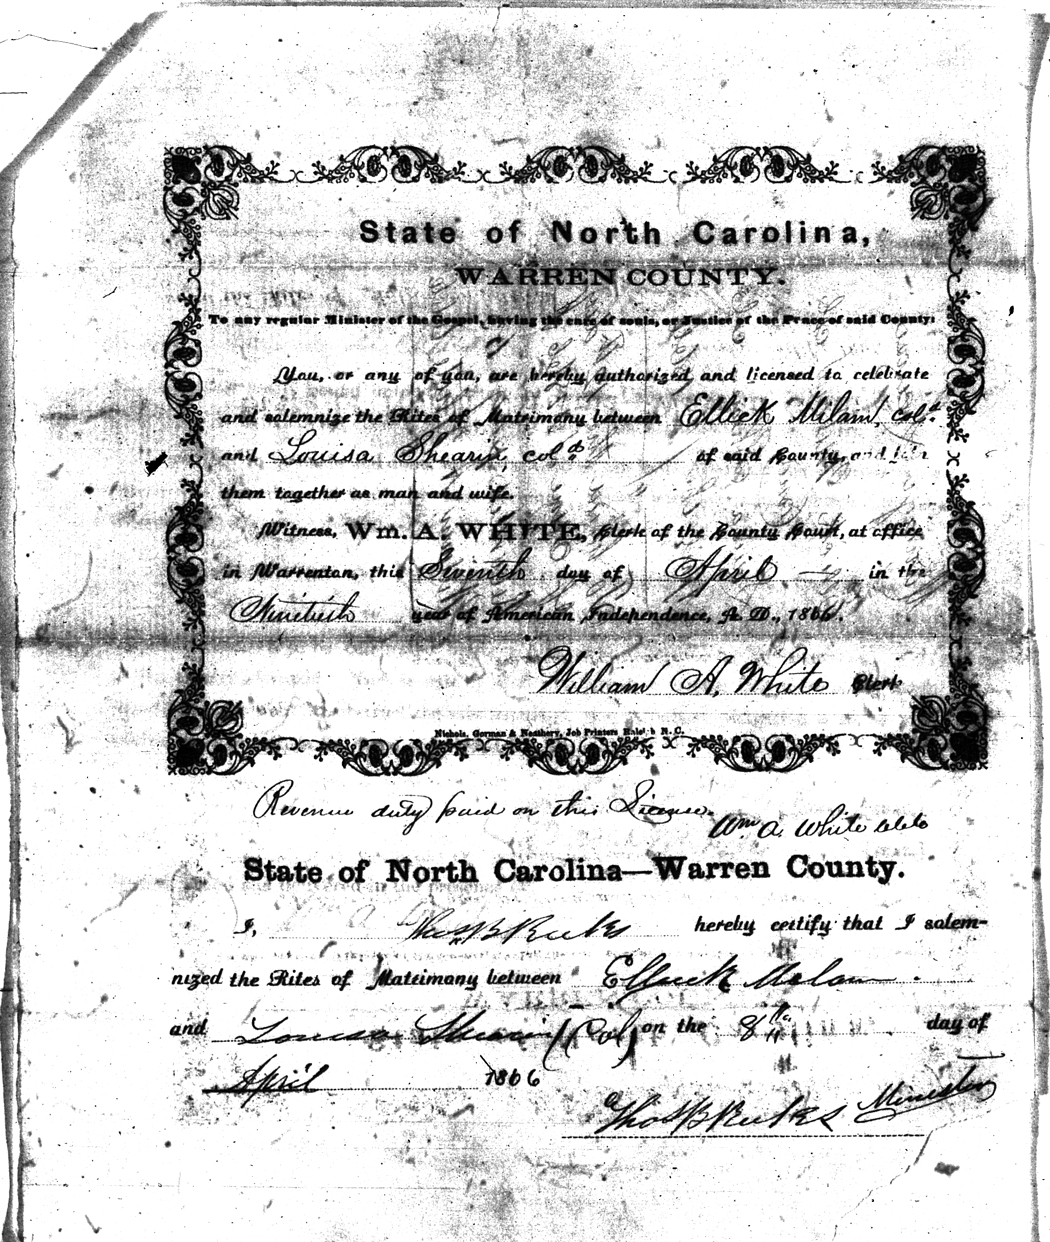 State of North Carolina,
WARREN COUNTY.
To any regular Minister of the Gospel, having the care of souls, or Justice of the Peace of said County:
You, or any of you, are hereby authorized and licensed to celebrate
and solemnize the Rites of Matrimony between Ellick Milam, col.d
and Louisa Shearin, col.d of said County, and join
them together as man and wife.
Witness, Wm. A. WHITE, Clerk of the County Court, at office
in Warrenton, this Seventh day of April in the
Ninetieth year of American Independence, A. D., 1866.
William A. White Clerk
Nichols, Gorman & Neathery, Job Printers Raleigh N. C.
Revenue duty paid on this License.
Wm A. White Clk
State of North Carolina—Warren County.
I, Thos B Ricks hereby certify that I solem-
nized the Rites of Matrimony between Ellick Milam
and Louisa Shearin (Col) on the 8th day of
April 1866
Thos B Ricks Minister